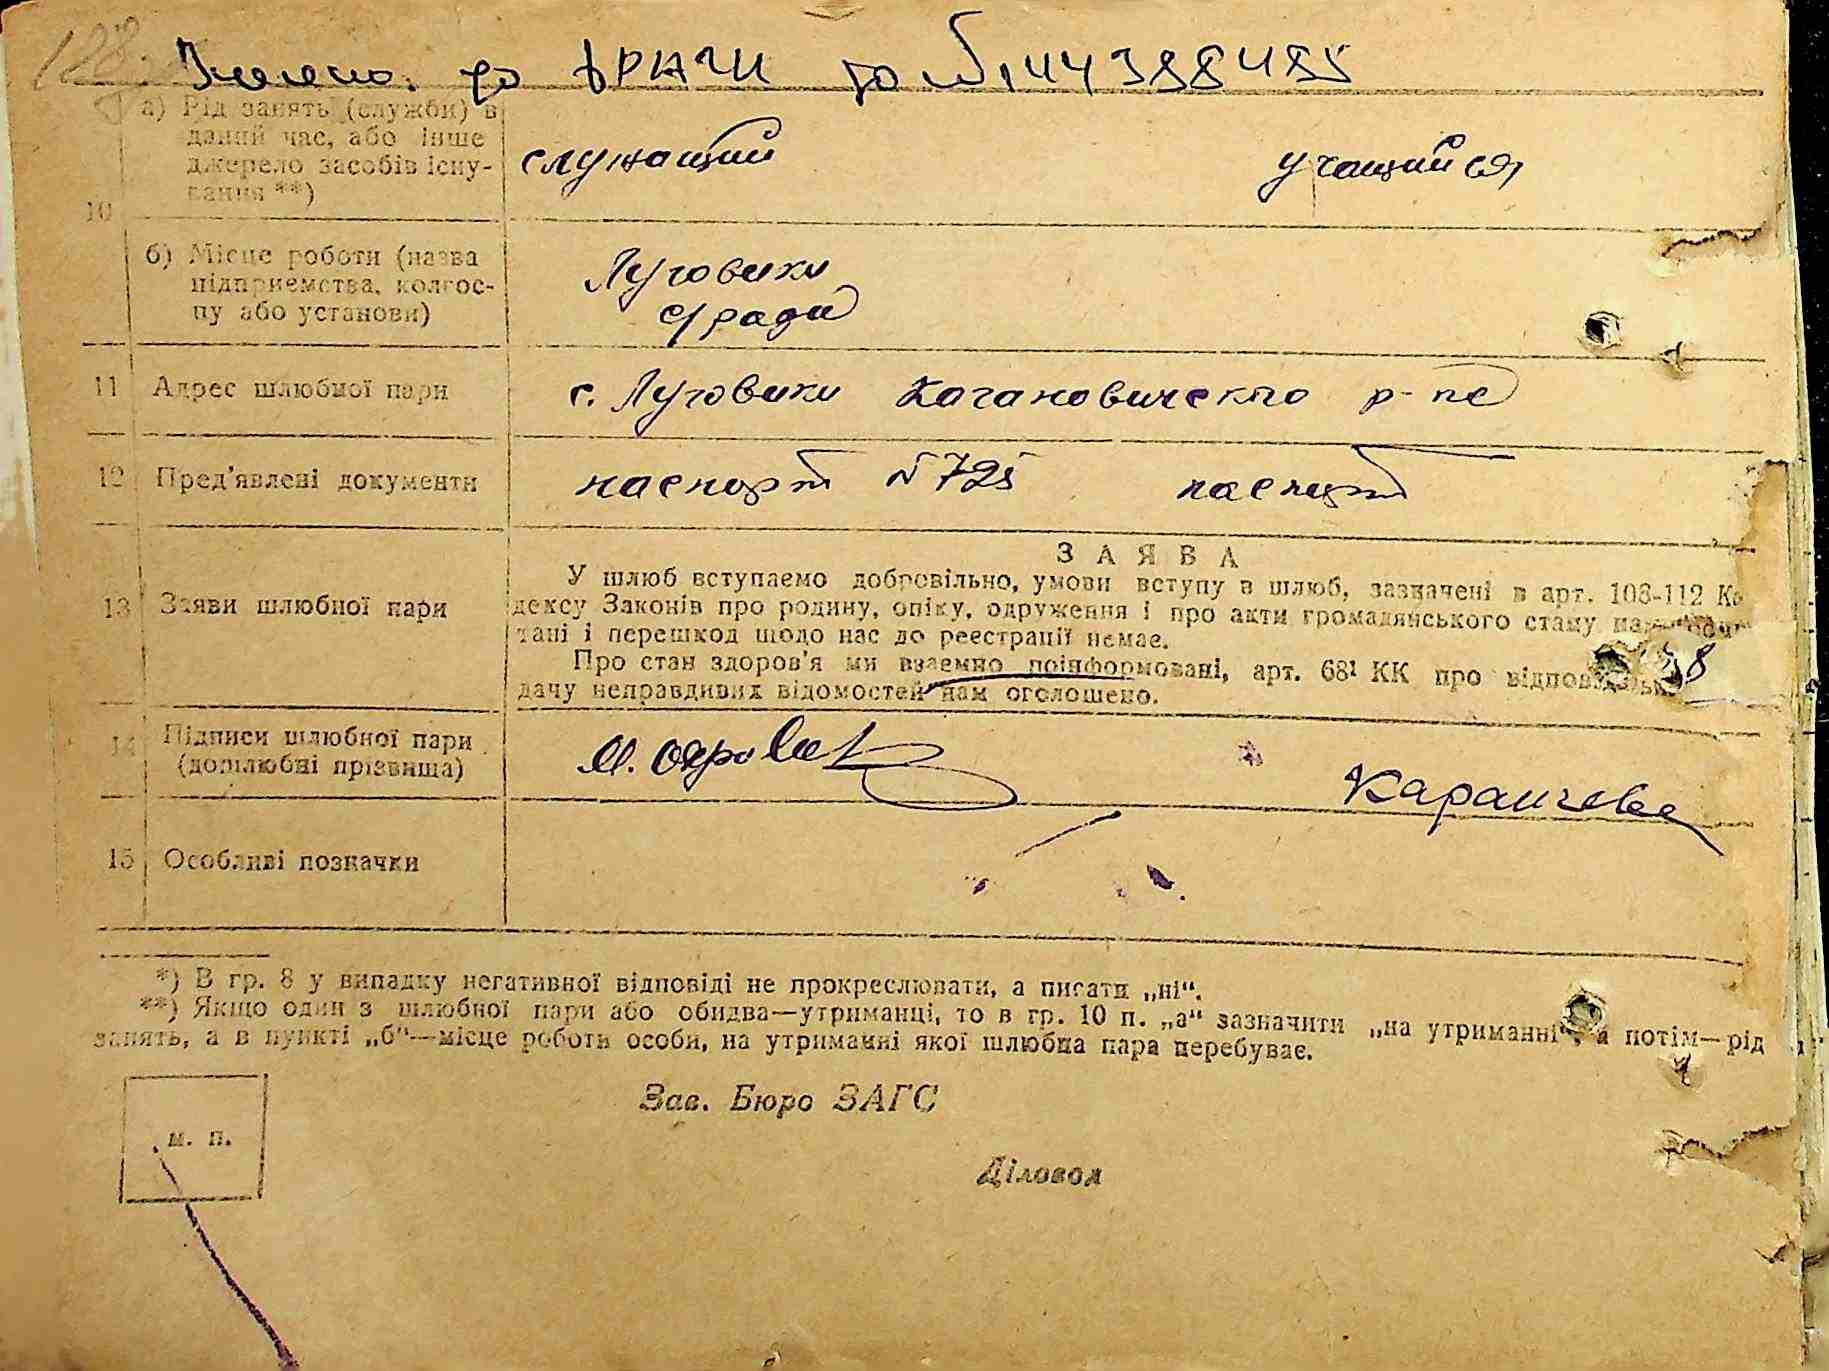 128.
Внесено до ДРАЦГ за №144388485
а) Рід занять (службн) в
даний час, або інше
джерело засобів існу-
вання **)
служащий
учащийся
10
б) Місце роботи (назва
підприємства, колгос-
пу або установи)
Луговики
с/рада
11 Адрес шлюбної пари
с. Луговики Кагановического р-на
12 Пред'явлені документи
паспорт №725 паспорт
ЗАЯВА
13 Заяви шлюбної пари
У шлюб вступаємо добровільно, умови вступу в шлюб, зазначені в арт. 108-112 Ко
дексу Законів про родину, опіку, одруження і про акти громадянського стану
тані і перешкод щодо нас до реєстрації немає.
Про стан здоров'я ми взаємно поінформовані, арт. 68¹ КК про
дачу неправдивих відомостей нам оголошено.
14 Підписи шлюбної пари
(дошлюбні прізвища)
15 Особливі позначки
*) В гр. 8 у випадку негативної відповіді не прокреслювати, а писати „ні“.
**) Якщо один з шлюбної пари або обидва—утриманці, то в гр. 10 п. „а“ зазначити „на утриманні“, а потім—рід
занять, а в пункті „б“—місце роботи особи, на утриманні якої шлюбна пара перебуває.
Зав. Бюро ЗАГС
м. п.
Діловод